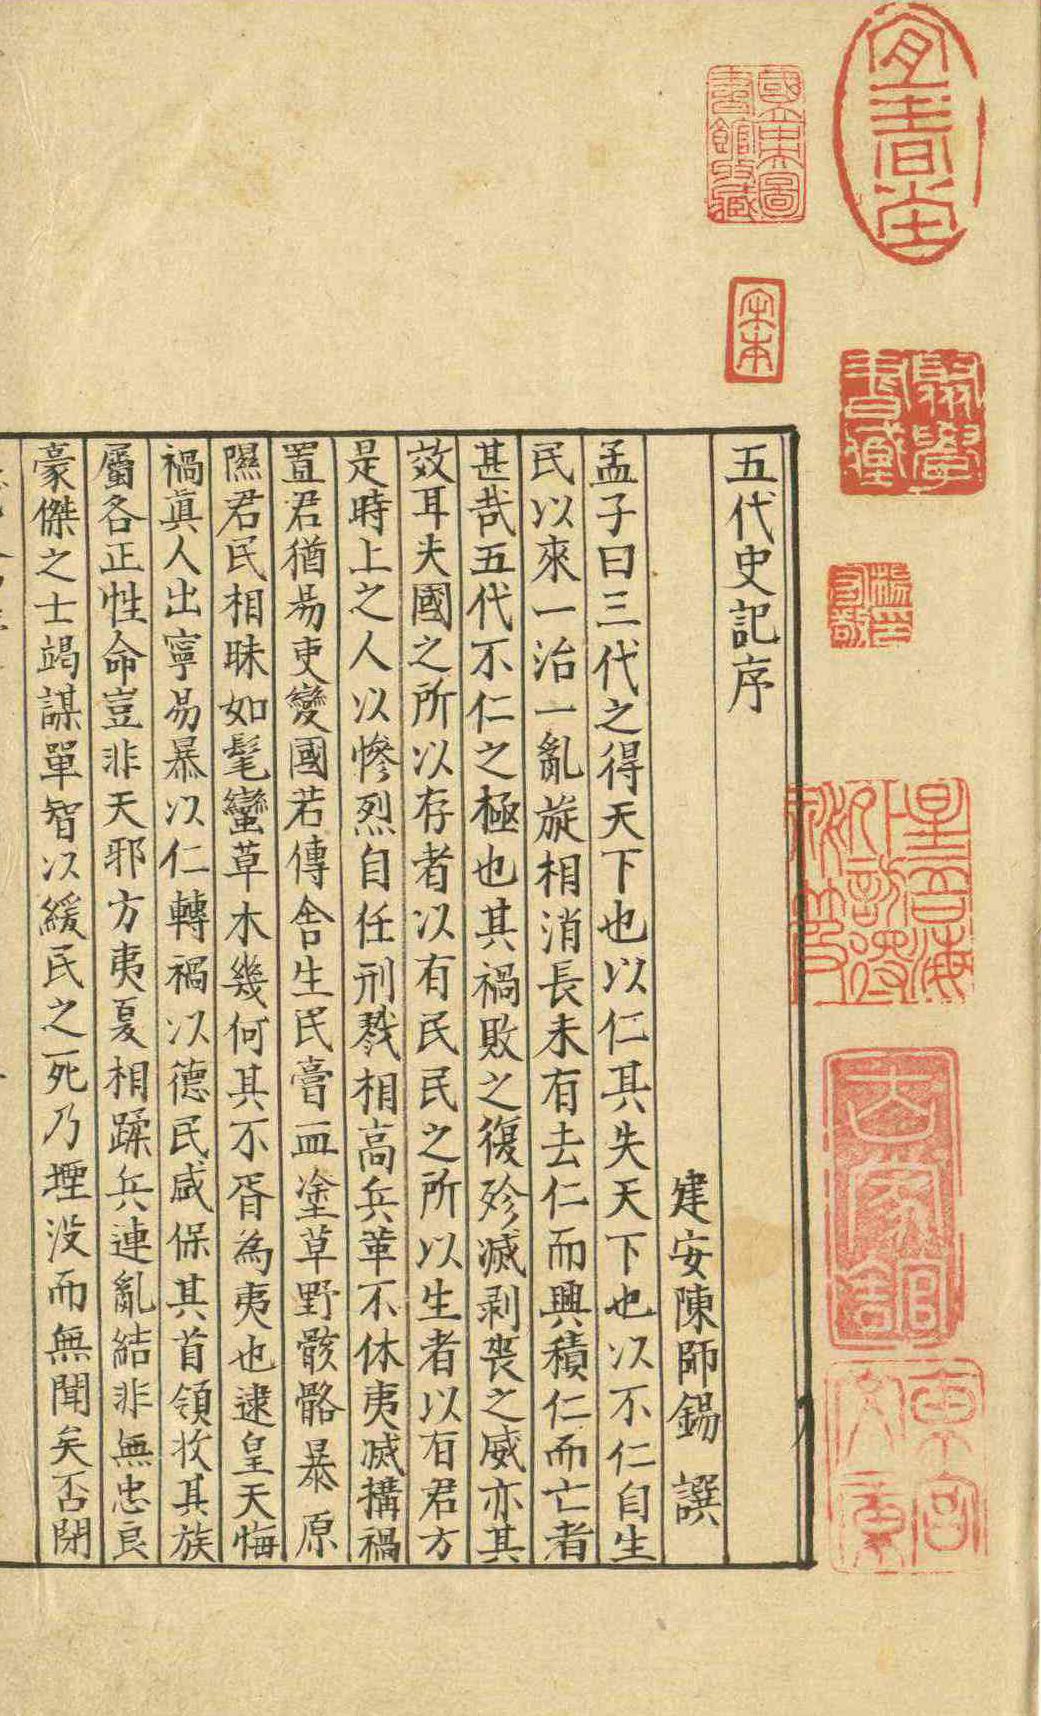 五代史記序
建安陳師錫 譔
孟子曰三代之得天下也以仁其失天下也以不仁自生
民以來一治一亂旋相消長未有去仁而興積仁而亡者
甚哉五代不仁之極也其禍敗之復殄滅剥喪之威亦其
效耳夫國之所以存者以有民民之所以生者以有君方
是時上之人以慘烈自任刑戮相高兵革不休夷滅構禍
置君猶易吏變國若傳舍生民膏血塗草野骸骼暴原
隰君民相眛如髦蠻草木幾何其不胥為夷也逮皇天悔
禍眞人出寧易暴以仁轉禍以德民咸保其首領收其族
屬各正性命豈非天邪方夷夏相蹂兵連亂結非無忠良
豪傑之士竭謀單智以緩民之死乃堙没而無聞矣否閉
宜春堂
國立中央圖書館收藏
宋本